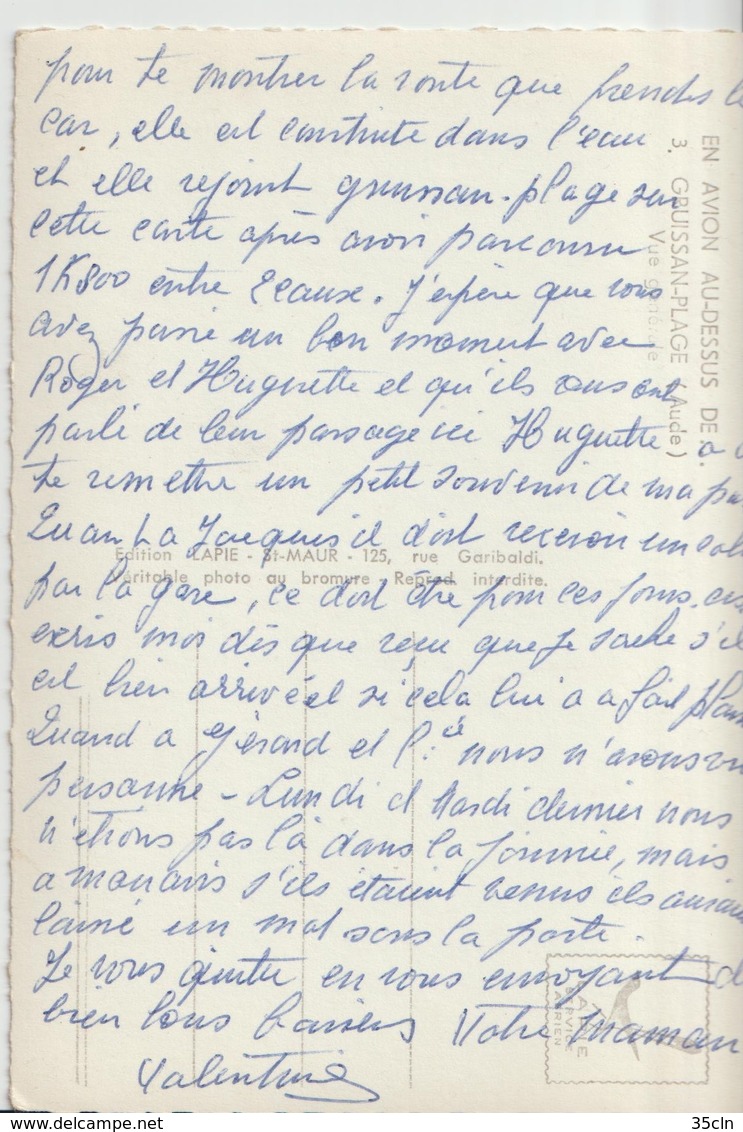 pour te montrer la route que prendes le
car, elle est construite dans l'eau
et elle rejoint gruissan-plage sur
cette carte après avoir parcouru
1K800 entre 2 eaux. J'espère que vous
avez passé un bon moment avec
Roger et Huguette et qu'ils vous ont
parlé de leur passage ici Huguette a
te remettre un petit souvenir de ma pa
Quant a Jacques il doit recevoir un col
par la gare, ce doit être pour ces jours-ci
écris moi dès que reçu que je sache s'il
est bien arrivé et si cela lui a fait plais
Quand a Gérard et Cie nous n'avons vu
personne - Lundi et Mardi dernier nous
n'étions pas là dans la journée, mais
a mon avis s'ils étaient venus ils auraient
laissé un mot sous la porte.
Je vous quitte en vous envoyant d
bien bons baisers Votre Maman
Valentine
EN AVION AU-DESSUS DE...
3. GRUISSAN-PLAGE (Aude)
Vue générale
Edition LAPIE - St-MAUR - 125, rue Garibaldi.
Véritable photo au bromure - Reprod. interdite.
LAPIE
SERVICE
AERIEN
35cln